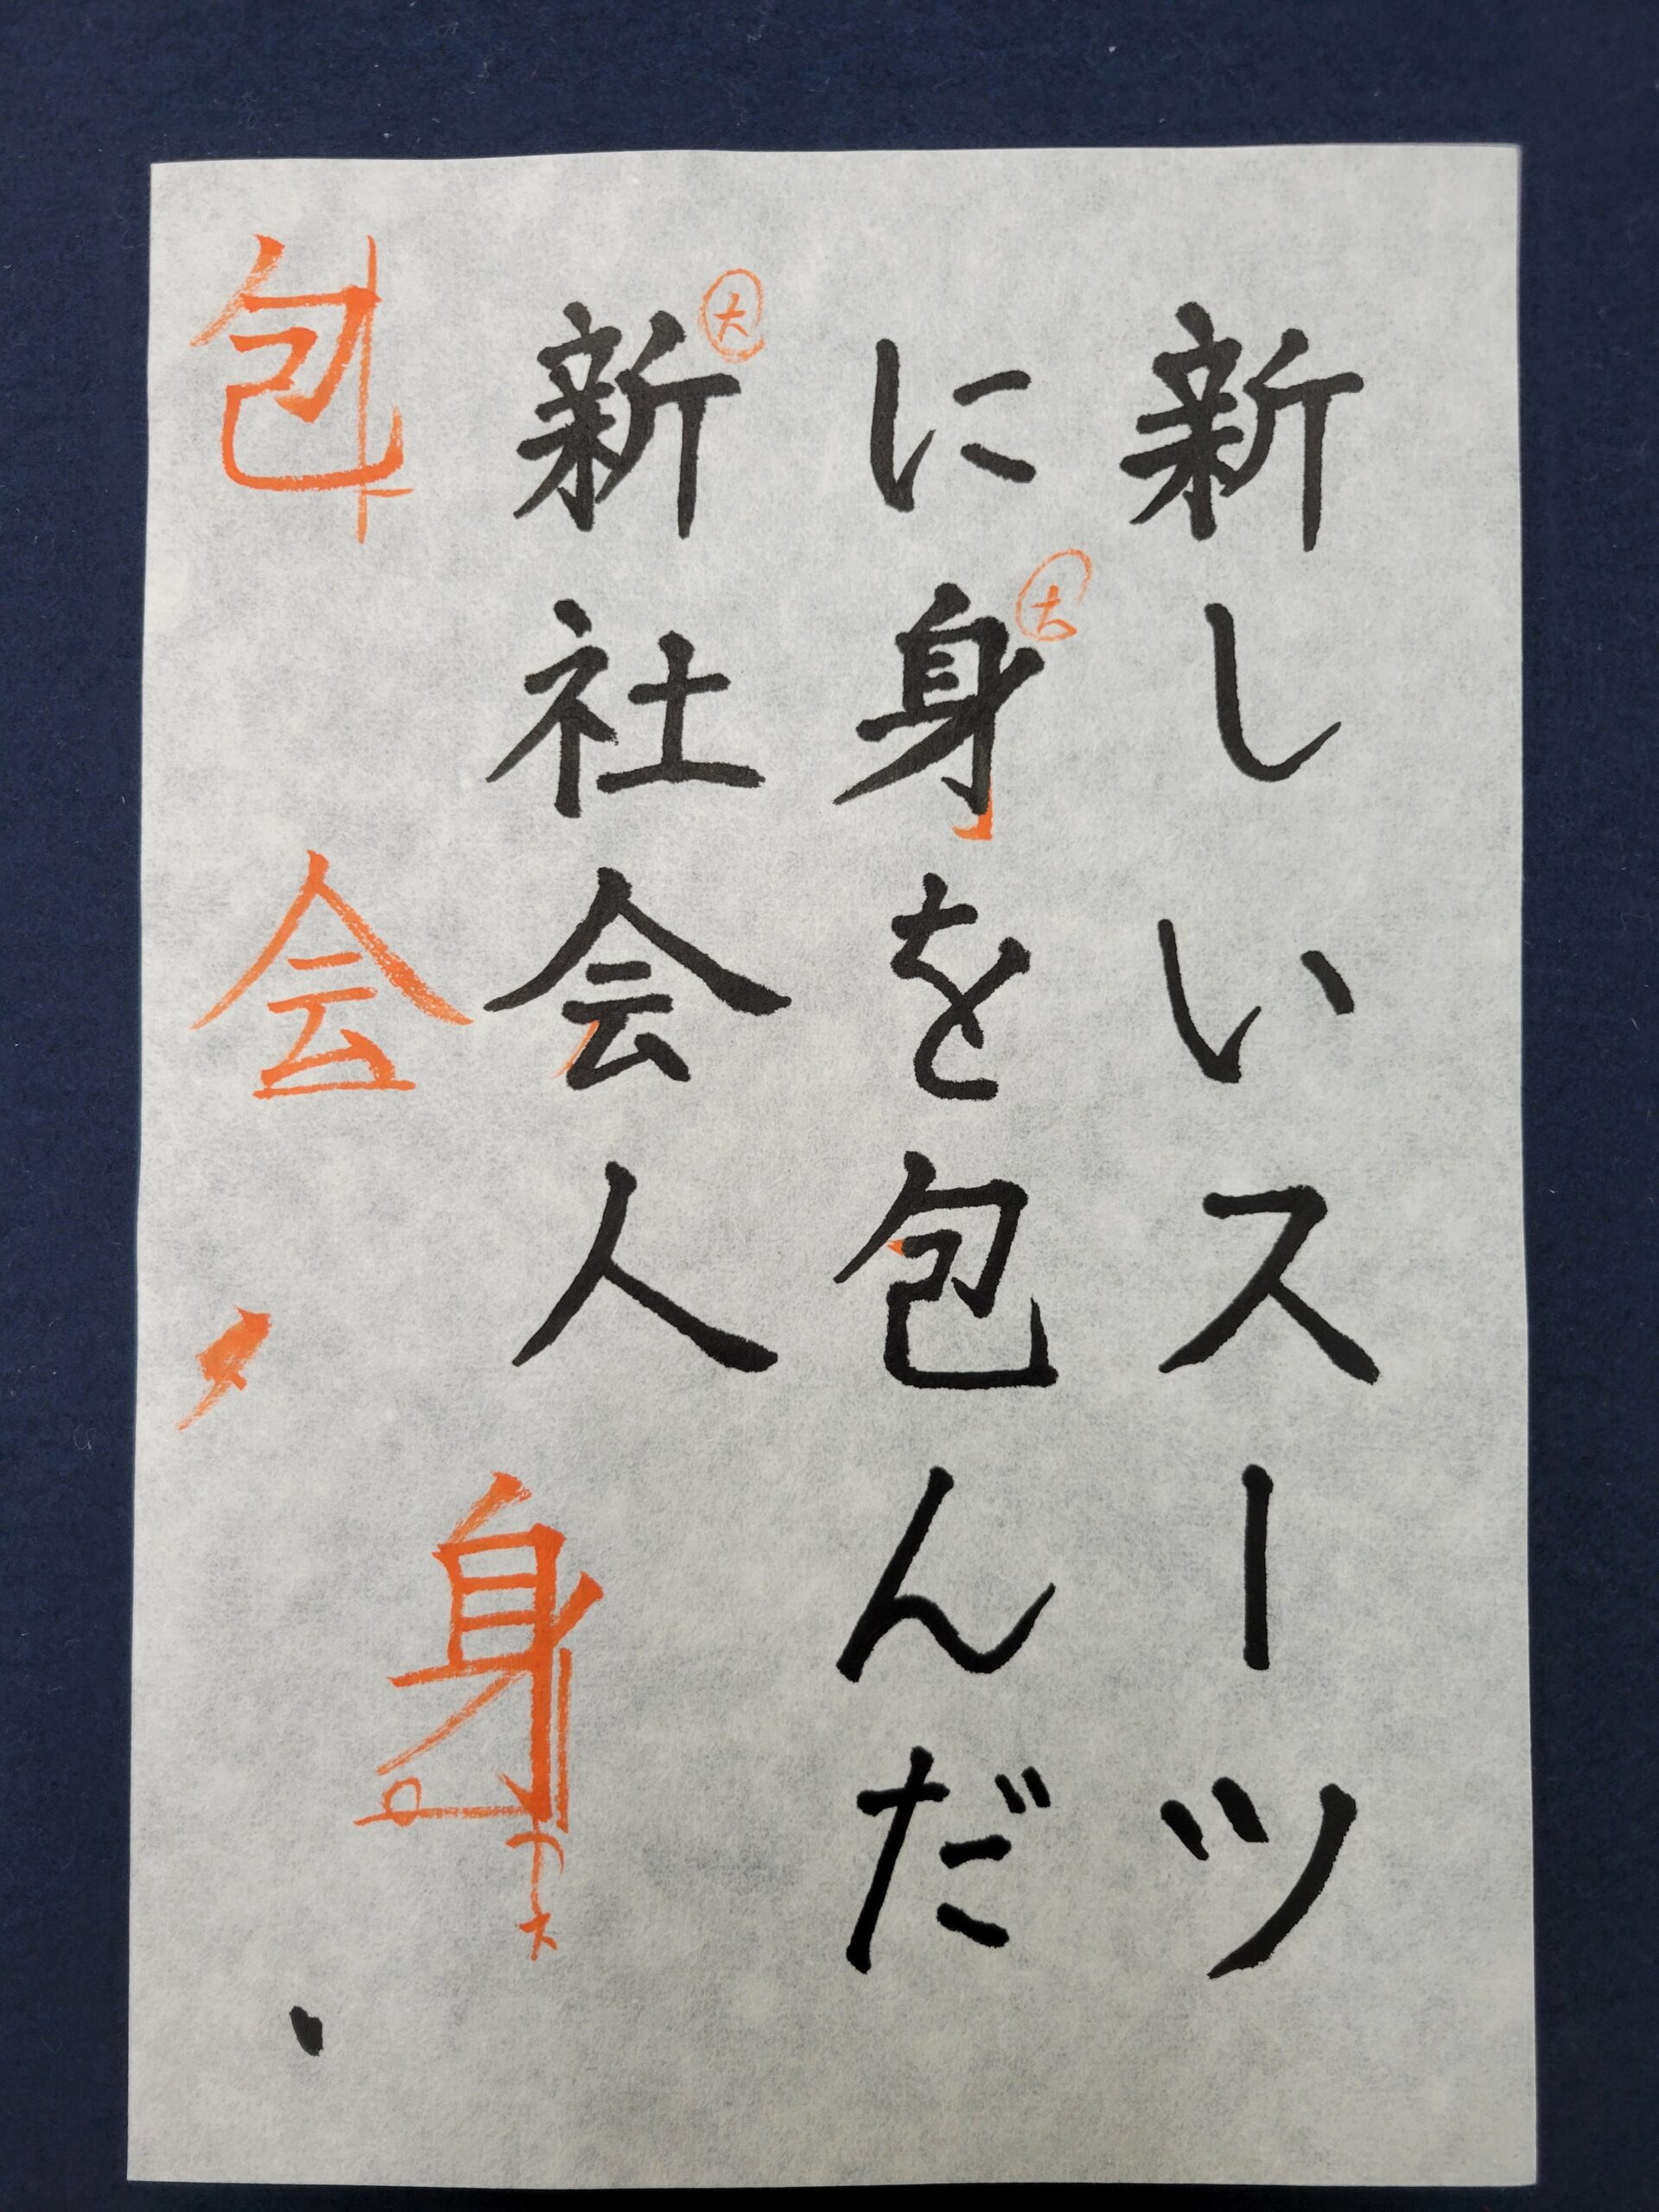 新しいスーツ
に身を包んだ
新社会人
大
大
包
会
身